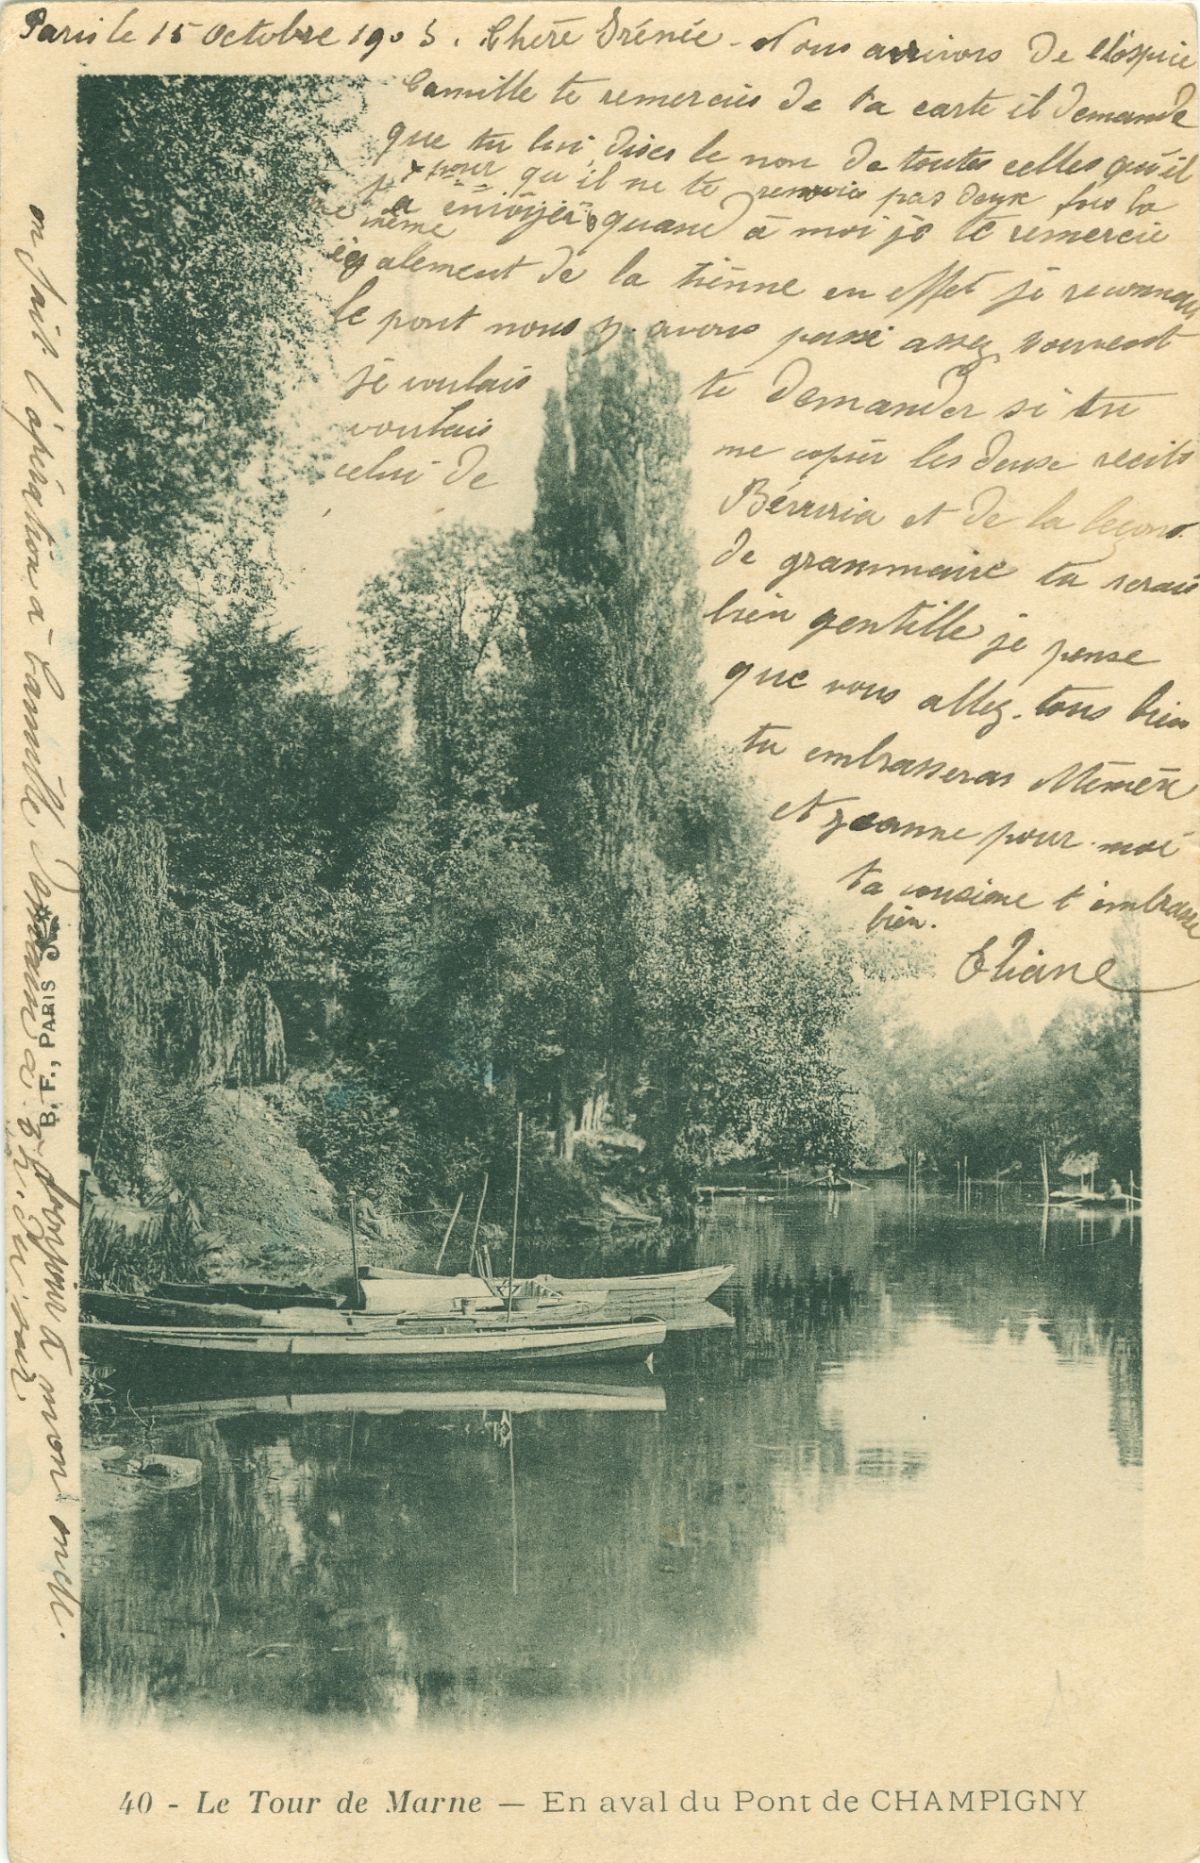 Paris le 15 Octobre 1903. Chère Irénée - Nous arrivons de l'hospice
Camille te remercies de ta carte il demande
que tu lui dises le nom de toutes celles qu'il
t'a envoyer pour qu'il ne te renvoies pas deux fois la
même quand à moi je te remercie
également de la tienne en effet je reconnais
le pont nous y avons passé assez souvent
je voulais te demander si tu
voulais me copier les deux recits
celui de et de la leçons
de grammaire tu serais
bien gentille je pense
que vous allez tous bien
tu embrasseras Mémère
et Jeanne pour moi
ta cousine t'embrasse
bien.
Eliane
on fait l'opération à Camille Demain à
bonjour à mon oncle.
B. F., PARIS
40 - Le Tour de Marne — En aval du Pont de CHAMPIGNY